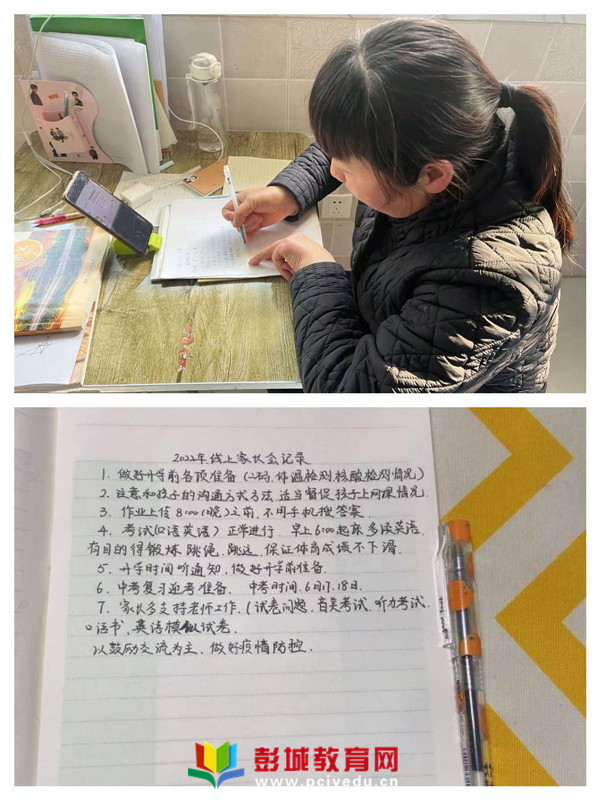 2022年线上家长会记录
1. 做好开学前各项准备(二码,体温检测,核酸检测情况)
2. 注意和孩子的沟通方式方法,适当督促孩子上网课情况.
3. 作业上传8:00(晚)之前,不用手机搜答案.
4. 考试(口语英语)正常进行. 早上6:00起床多读英语,
有目的得锻炼跳绳,跳远,保证体育成绩不下滑.
5. 开学时间听通知,做好开学前准备.
6. 中考复习迎考准备. 中考时间.6月17.18日.
7. 家长多支持老师工作.(试卷问题,音美考试,听力考试.
口语书,英语模似试卷.
以鼓励交流为主.做好疫情防控.
彭城教育网
www.pcivedu.cn